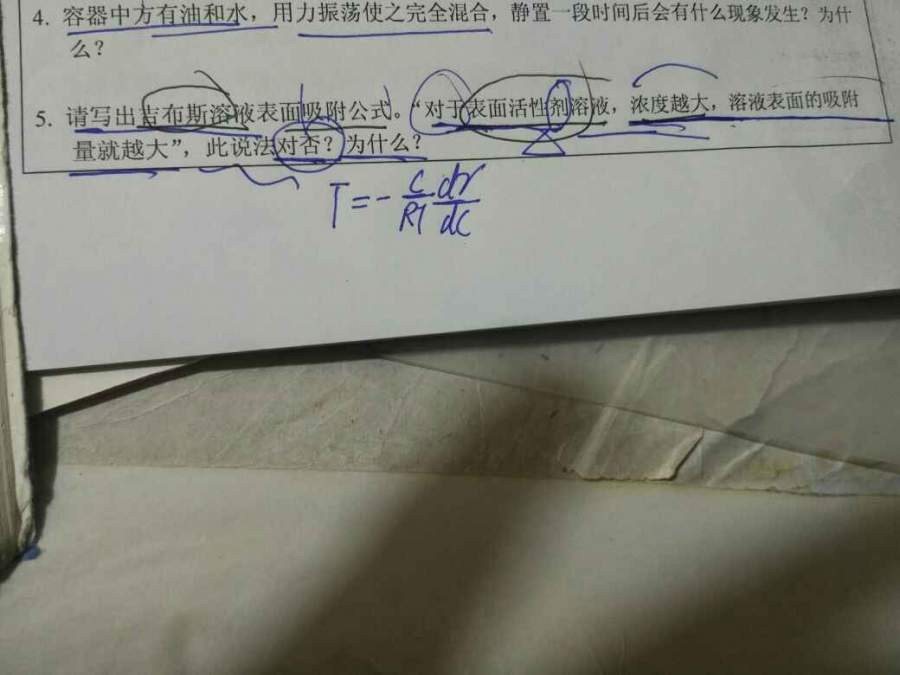 4. 容器中方有油和水，用力振荡使之完全混合，静置一段时间后会有什么现象发生？为什
么？
5. 请写出吉布斯溶液表面吸附公式。“对于表面活性剂溶液，浓度越大，溶液表面的吸附
量就越大”，此说法对否？为什么？
Γ = - C/RT dγ/dC